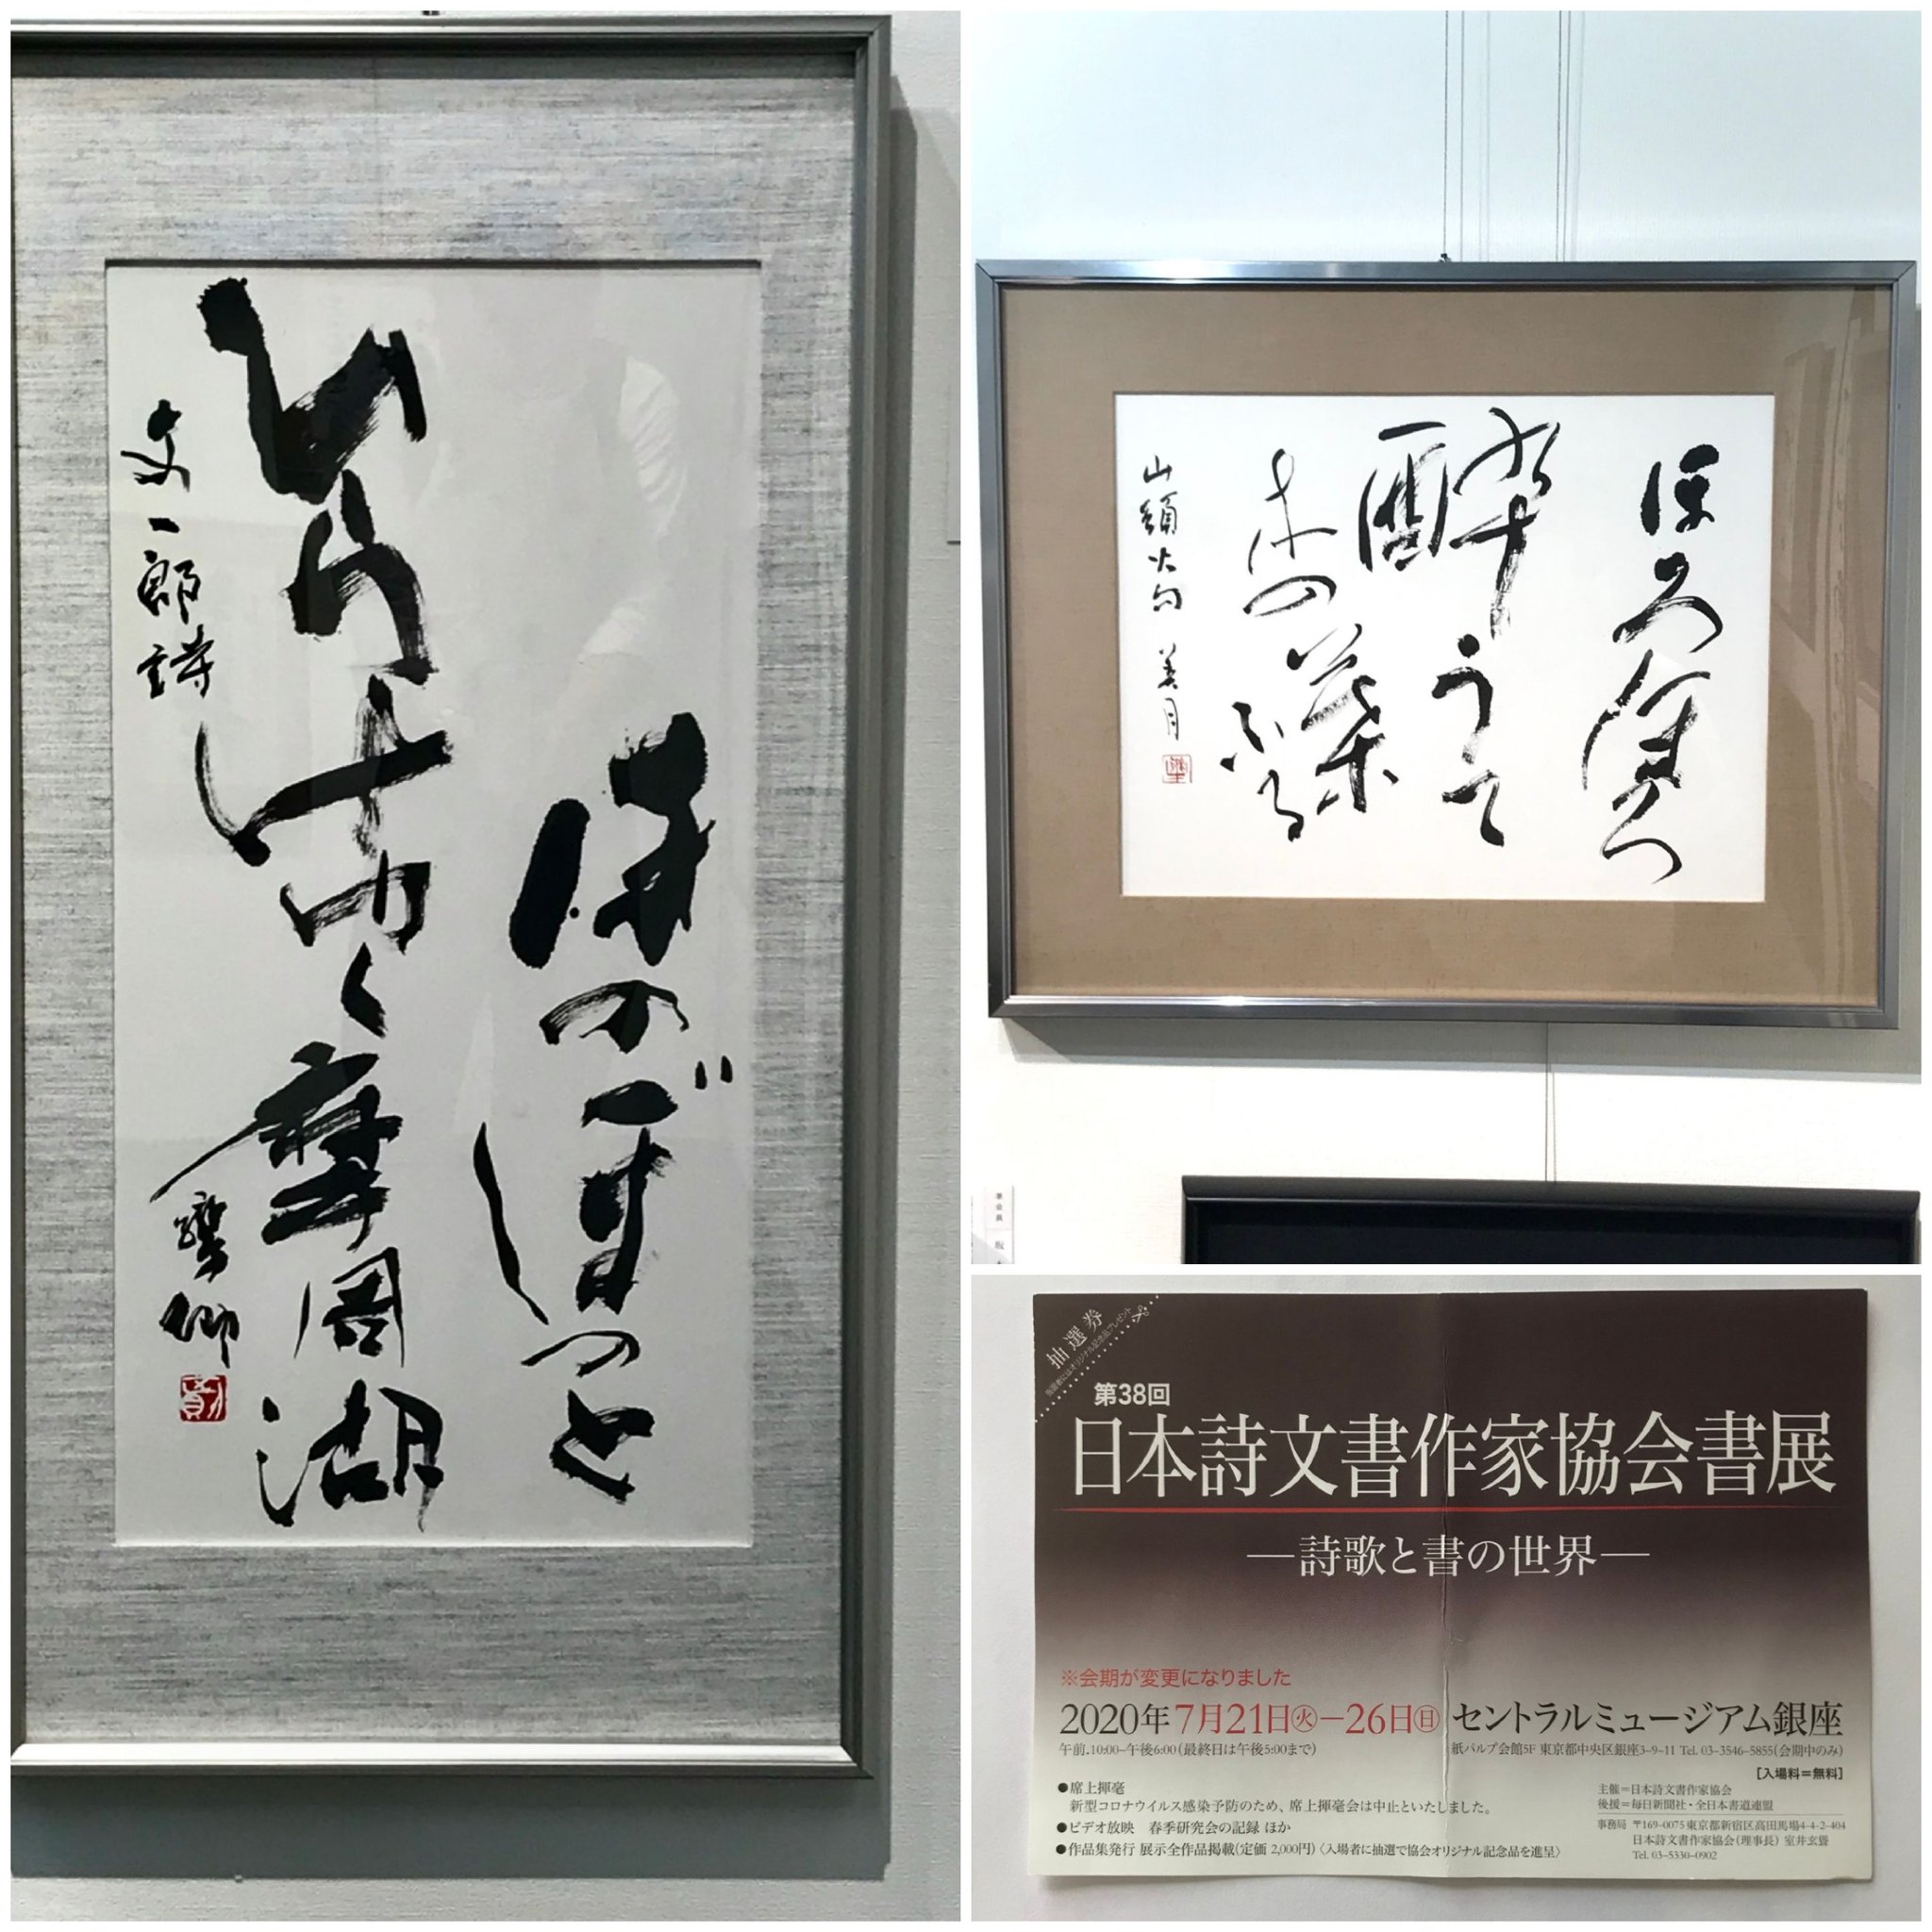 ほのぼのと
ひらけゆく摩周湖
文一郎詩
ほろほろ
酔うて
木の葉
ふる
山頭火句 美月
準会員
抽選券
当選者にはオリジナル記念品プレゼント
第38回
日本詩文書作家協会書展
―詩歌と書の世界―
※会期が変更になりました
2020年7月21日㊋―26日㊐ セントラルミュージアム銀座
午前.10:00–午後6:00(最終日は午後5:00まで)
紙パルプ会館5F 東京都中央区銀座3–9–11 Tel. 03–3546–5855(会期中のみ)
[入場料=無料]
●席上揮毫
新型コロナウイルス感染予防のため、席上揮毫会は中止といたしました。
●ビデオ放映 春季研究会の記録 ほか
●作品集発行 展示全作品掲載(定価 2,000円)〈入場者に抽選で協会オリジナル記念品を進呈〉
主催=日本詩文書作家協会
後援=毎日新聞社・全日本書道連盟
事務局 〒169–0075 東京都新宿区高田馬場4–4–2–404
日本詩文書作家協会(理事長) 室井玄聳
Tel. 03–5330–0902